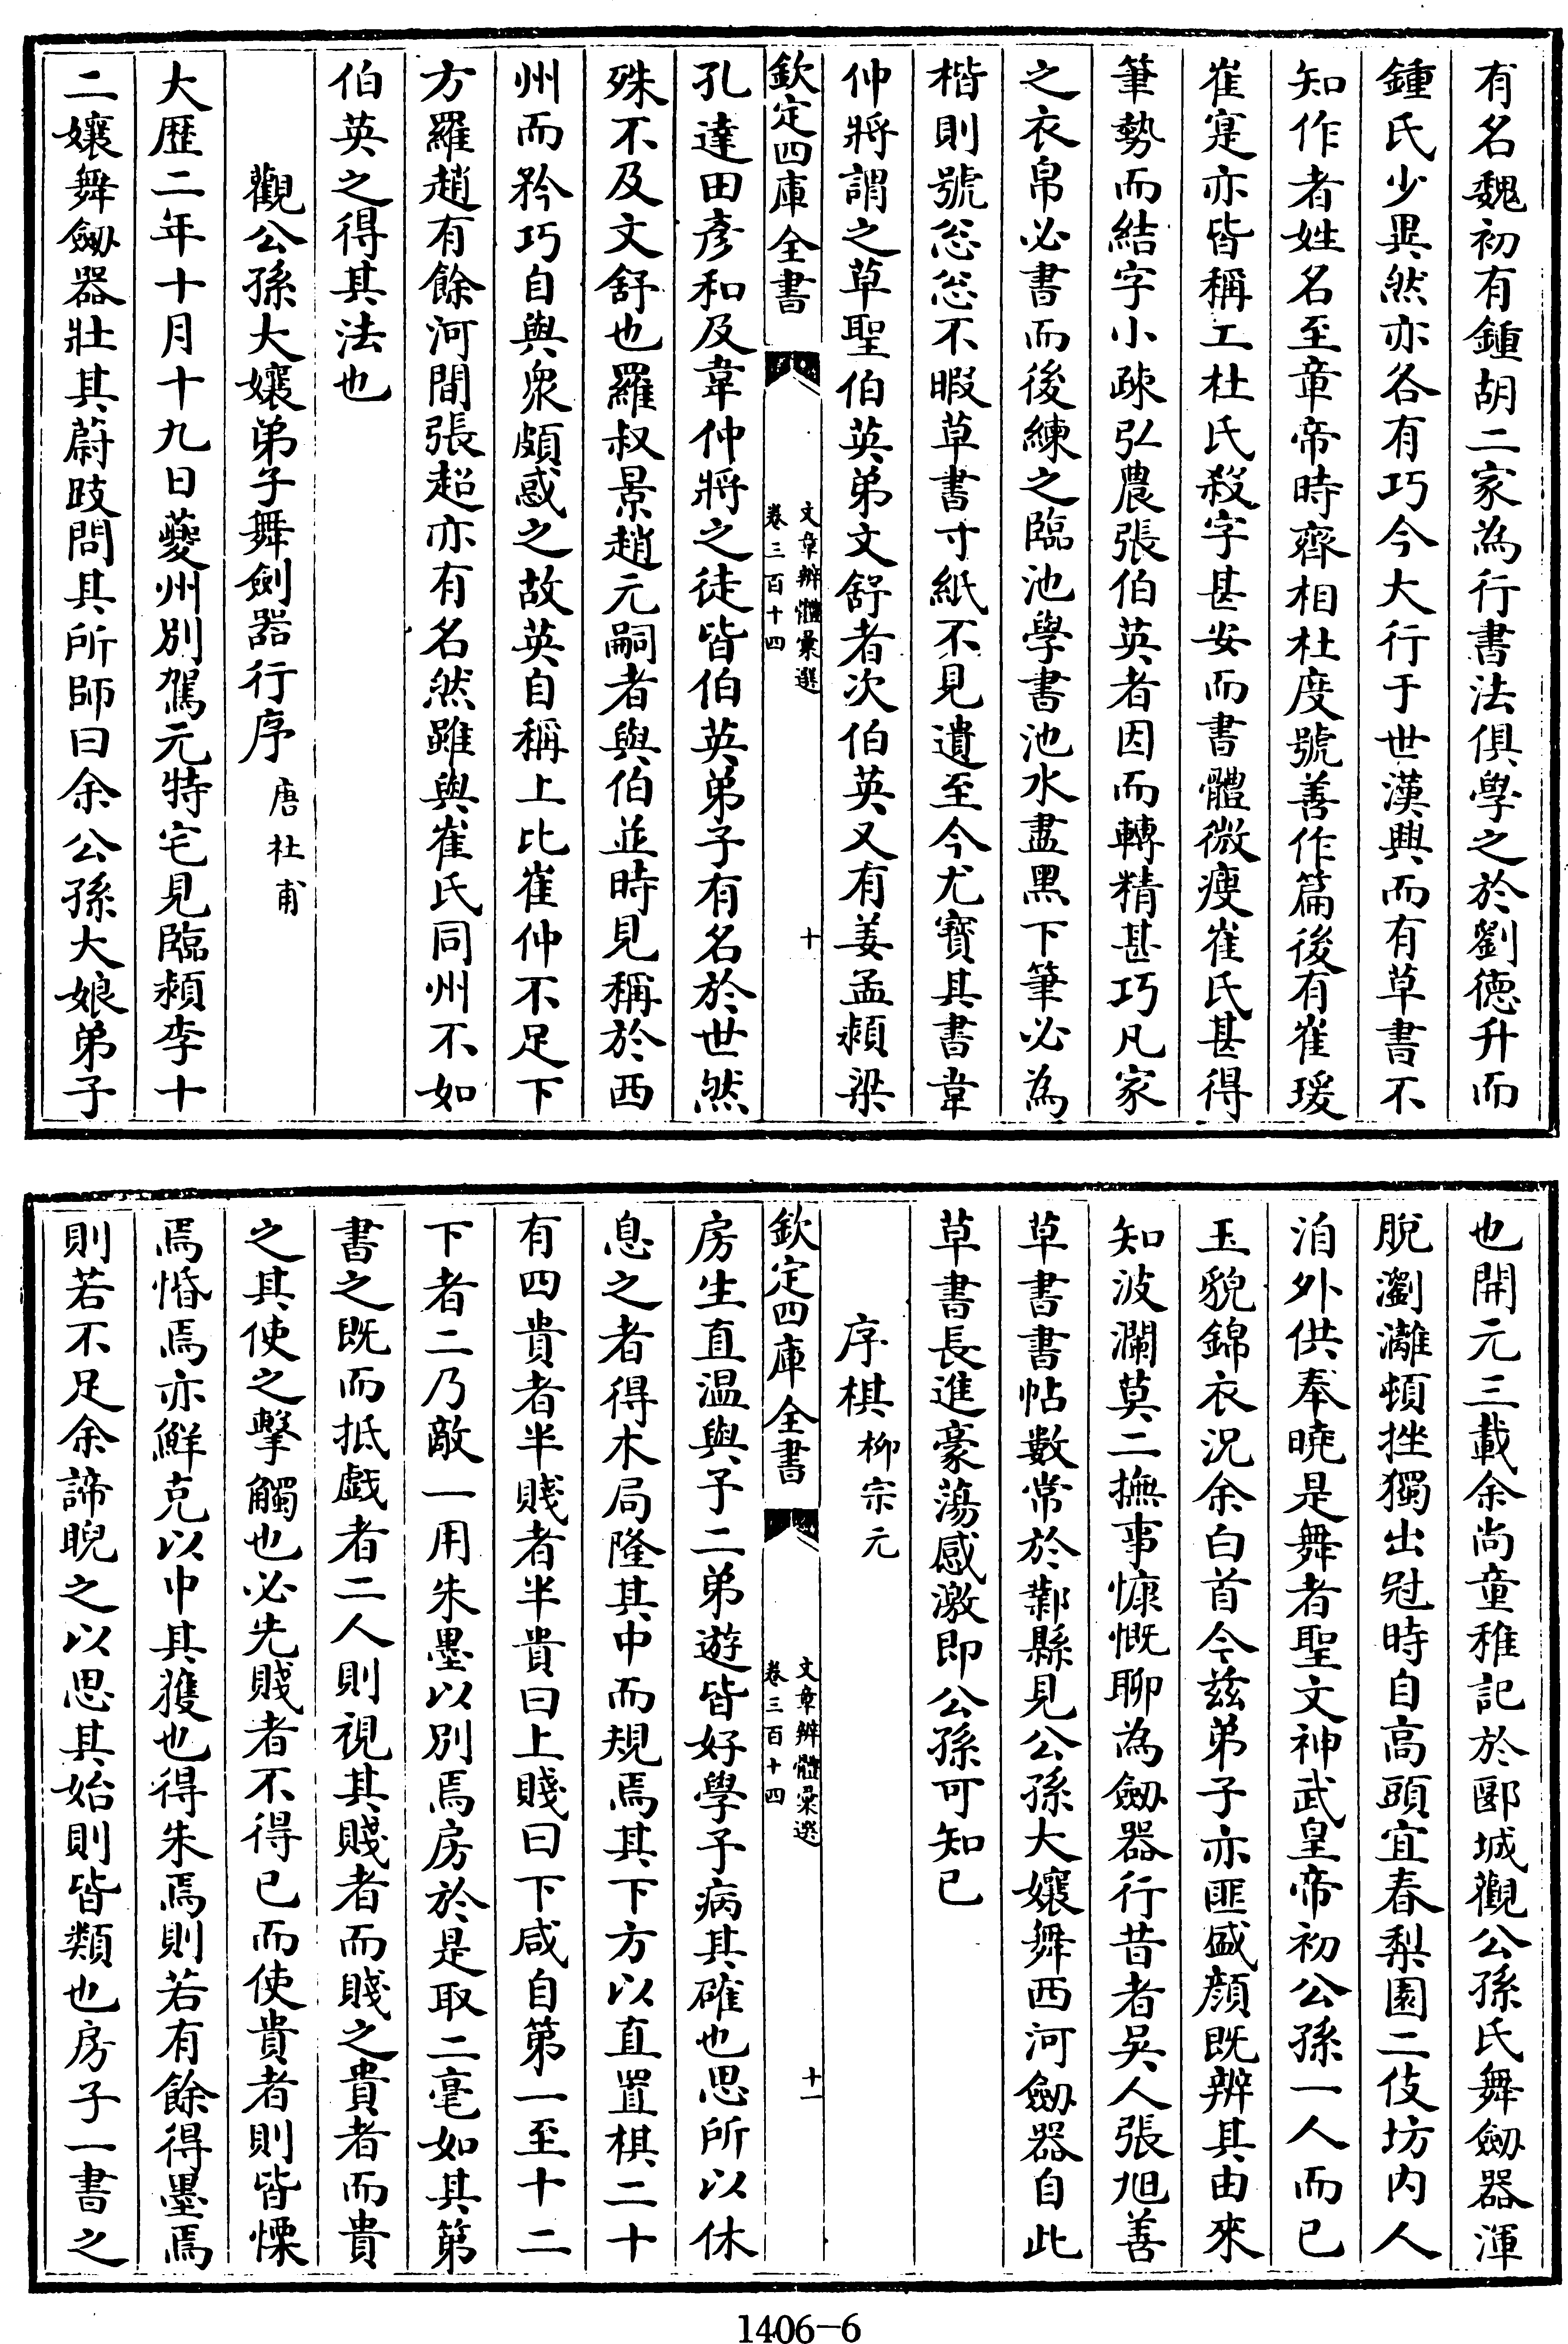 有名魏初有鍾胡二家為行書法俱學之於劉德升而
鍾氏少異然亦各有巧今大行于世漢興而有草書不
知作者姓名至章帝時齊相杜度號善作篇後有崔瑗
崔寔亦皆稱工杜氏殺字甚安而書體微瘦崔氏甚得
筆勢而結字小疎弘農張伯英者因而轉精甚巧凡家
之衣帛必書而後練之臨池學書池水盡黑下筆必為
楷則號怱怱不暇草書寸紙不見遺至今尤寶其書韋
仲將謂之草聖伯英弟文舒者次伯英又有姜孟潁梁
欽定四庫全書
文章辨體彙選
卷三百十四
十
孔達田彥和及韋仲將之徒皆伯英弟子有名於世然
殊不及文舒也羅叔景趙元嗣者與伯並時見稱於西
州而矜巧自與衆頗惑之故英自稱上比崔仲不足下
方羅趙有餘河間張超亦有名然雖與崔氏同州不如
伯英之得其法也
觀公孫大孃弟子舞劍器行序
唐杜甫
大歷二年十月十九日夔州別駕元特宅見臨潁李十
二孃舞劒器壯其蔚跂問其所師曰余公孫大娘弟子
也開元三載余尚童稚記於郾城觀公孫氏舞劒器渾
脫瀏灕頓挫獨出冠時自高頭宜春梨園二伎坊內人
洎外供奉曉是舞者聖文神武皇帝初公孫一人而已
玉貌錦衣況余白首今兹弟子亦匪盛顏既辨其由來
知波瀾莫二撫事慷慨聊為劒器行昔者吳人張旭善
草書書帖數常於鄴縣見公孫大孃舞西河劒器自此
草書長進豪蕩感激即公孫可知已
序棋
柳宗元
欽定四庫全書
文章辨體彙選
卷三百十四
十一
房生直温與予二弟遊皆好學予病其確也思所以休
息之者得木局隆其中而規焉其下方以直置棋二十
有四貴者半賤者半貴曰上賤曰下咸自第一至十二
下者二乃敵一用朱墨以別焉房於是取二毫如其第
書之既而抵戲者二人則視其賤者而賤之貴者而貴
之其使之擊觸也必先賤者不得已而使貴者則皆慄
焉惛焉亦鮮克以中其獲也得朱焉則若有餘得墨焉
則若不足余諦睨之以思其始則皆類也房子一書之
1406-6